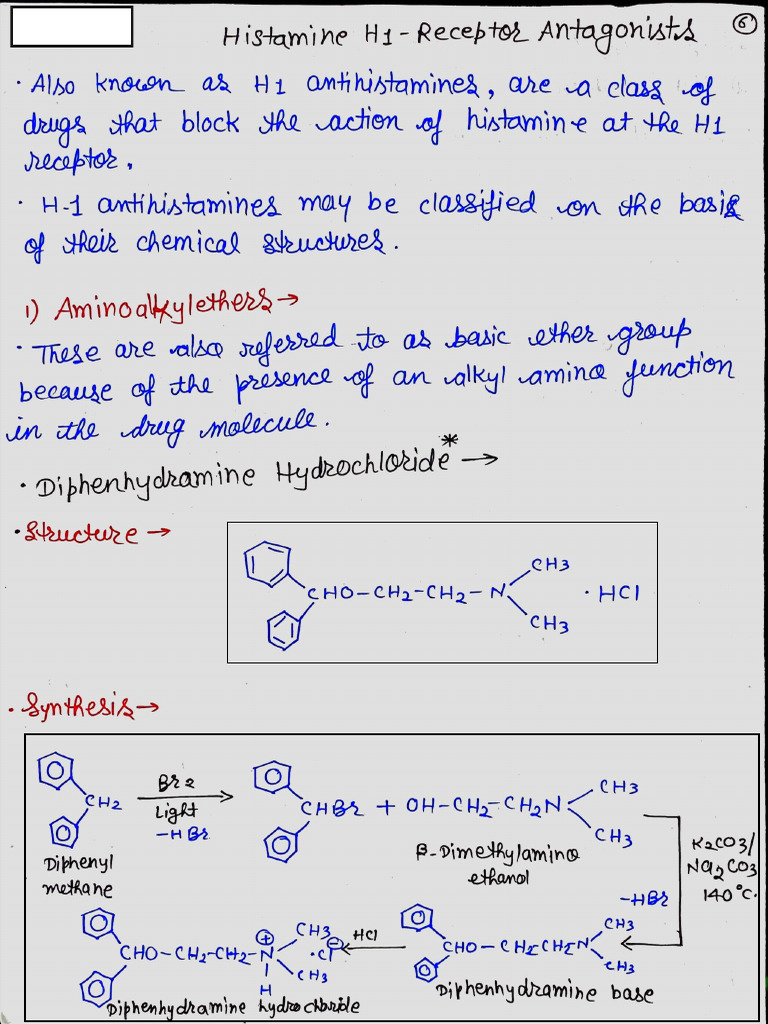 Histamine H1-Receptor Antagonists
6
• Also known as H1 antihistamines, are a class of
drugs that block the action of histamine at the H1
receptor.
• H-1 antihistamines may be classified on the basis
of their chemical structures.
1) Aminoalkylethers→
• These are also referred to as basic ether group
because of the presence of an alkyl amino function
in the drug molecule.
• Diphenhydramine Hydrochloride* →
• Structure →
CH3
CHO-CH2-CH2-N · HCl
CH3
• Synthesis→
CH2
Br2
Light
-HBr
CHBr + OH-CH2-CH2N
CH3
CH3
Diphenyl
methane
β-Dimethylamino
ethanol
K2CO3/
Na2CO3
140°C.
-HBr
CHO-CH2CH2N
CH3
CH3
Diphenhydramine base
HCl
CHO-CH2-CH2-N
⊕
CH3
·Cl⊖
CH3
H
Diphenhydramine hydrochloride